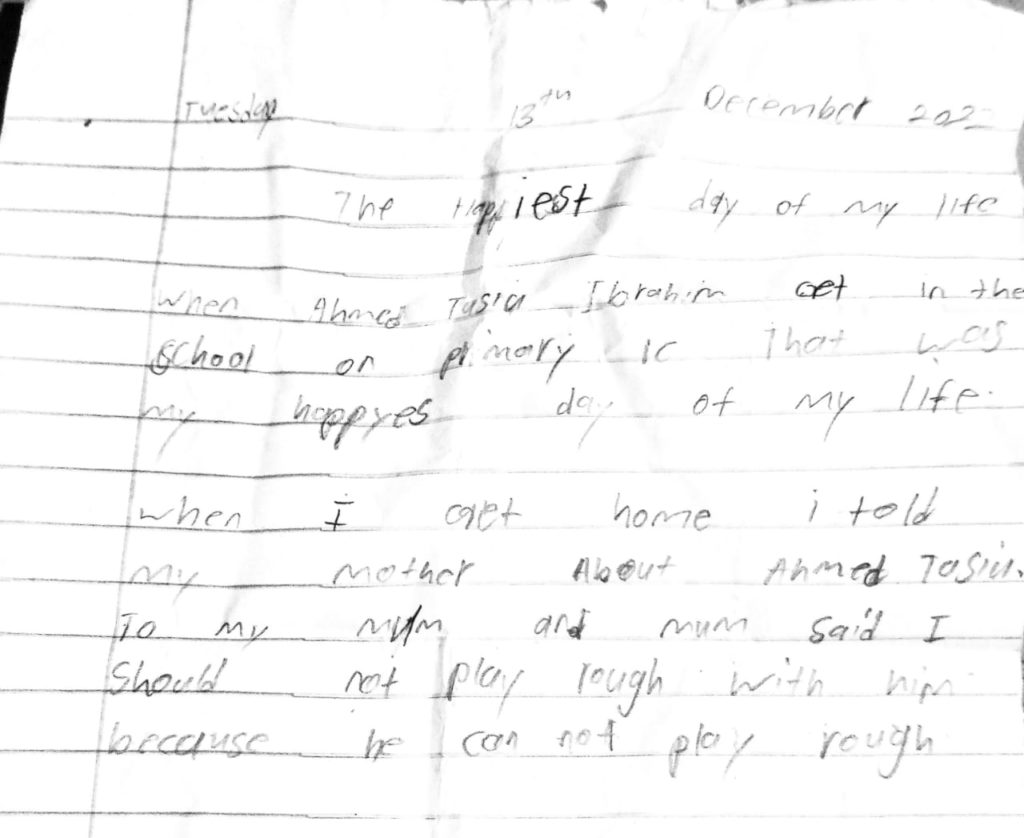 Tuesday 13th December 2022
The Happiest day of my life
When Ahmed Tasiu Ibrahim get in the
School or primary 1c That was
my happyes day of my life.
when I get home i told
My mother About Ahmed Tasiu.
To my mum and mum said I
Should not play rough with him
because he can not play rough